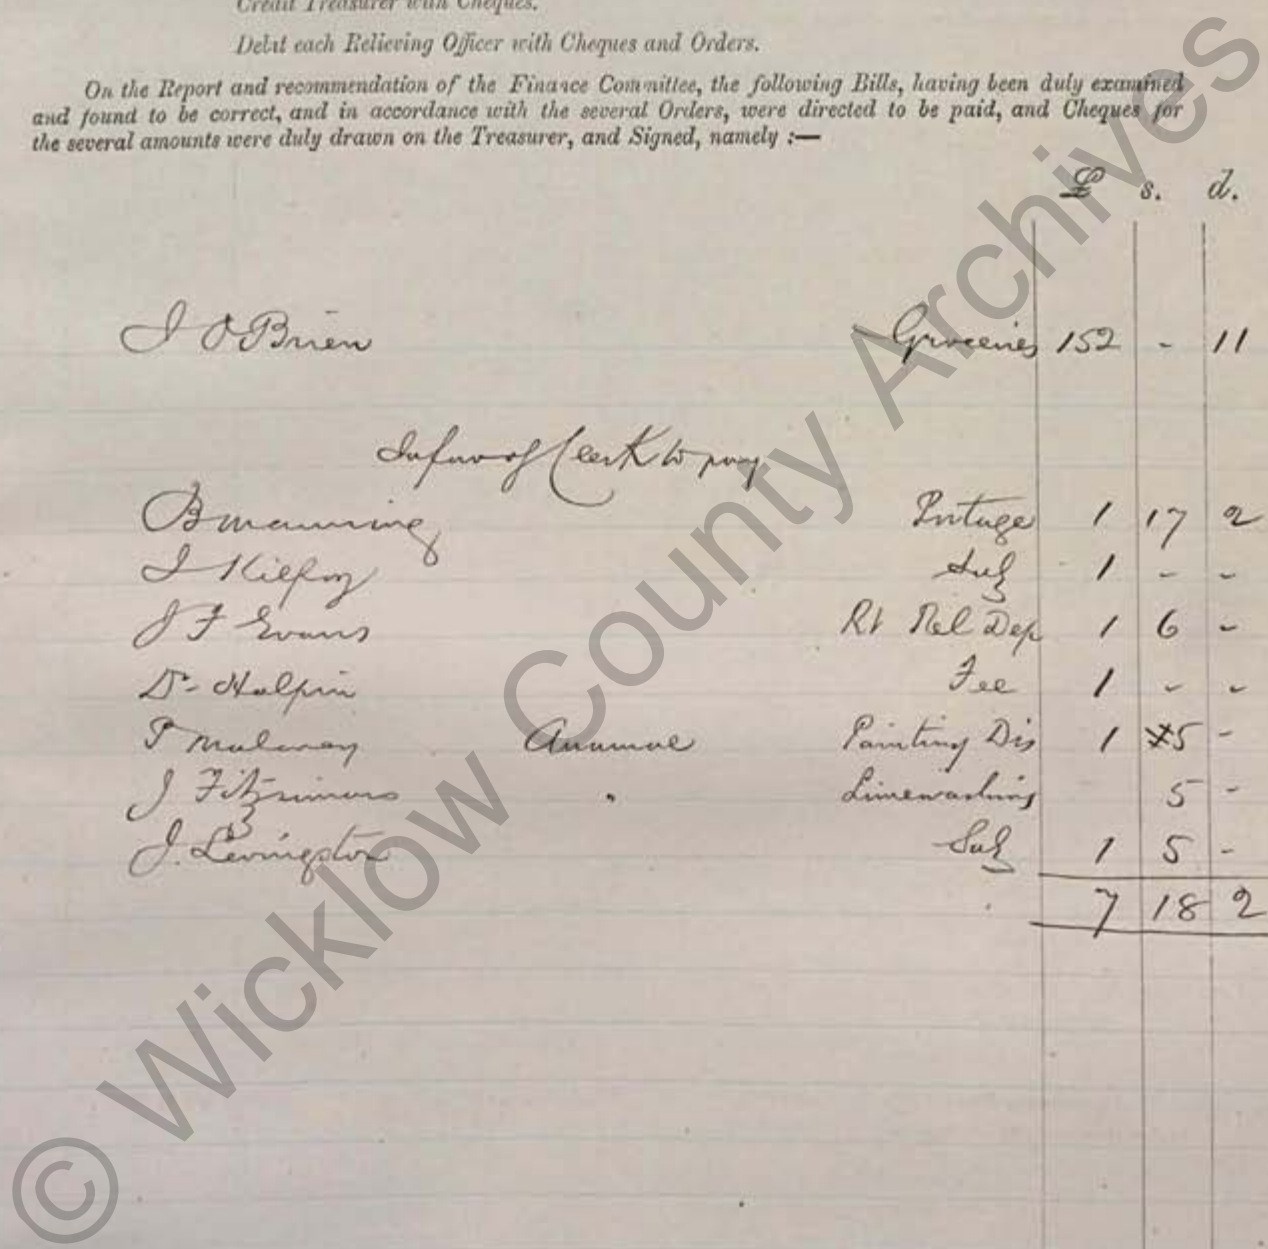 Credit Treasurer with Cheques.
Debit each Relieving Officer with Cheques and Orders.
On the Report and recommendation of the Finance Committee, the following Bills, having been duly examined
and found to be correct, and in accordance with the several Orders, were directed to be paid, and Cheques for
the several amounts were duly drawn on the Treasurer, and Signed, namely :—
£ s. d.
J O'Brien Groceries 152 - 11
In favor of Clerk to pay
B Manning Postage 1 17 2
J Kilfoy 1 - -
J F Evans Rt Rel Dep 1 6 -
Dr Halpin Fee 1 - -
P Mulvany Annamoe Painting Dis 1 5 -
J Fitzsimons " Limewashing 5 -
J. Levingston 1 5 -
7 18 2
© Wicklow County Archives